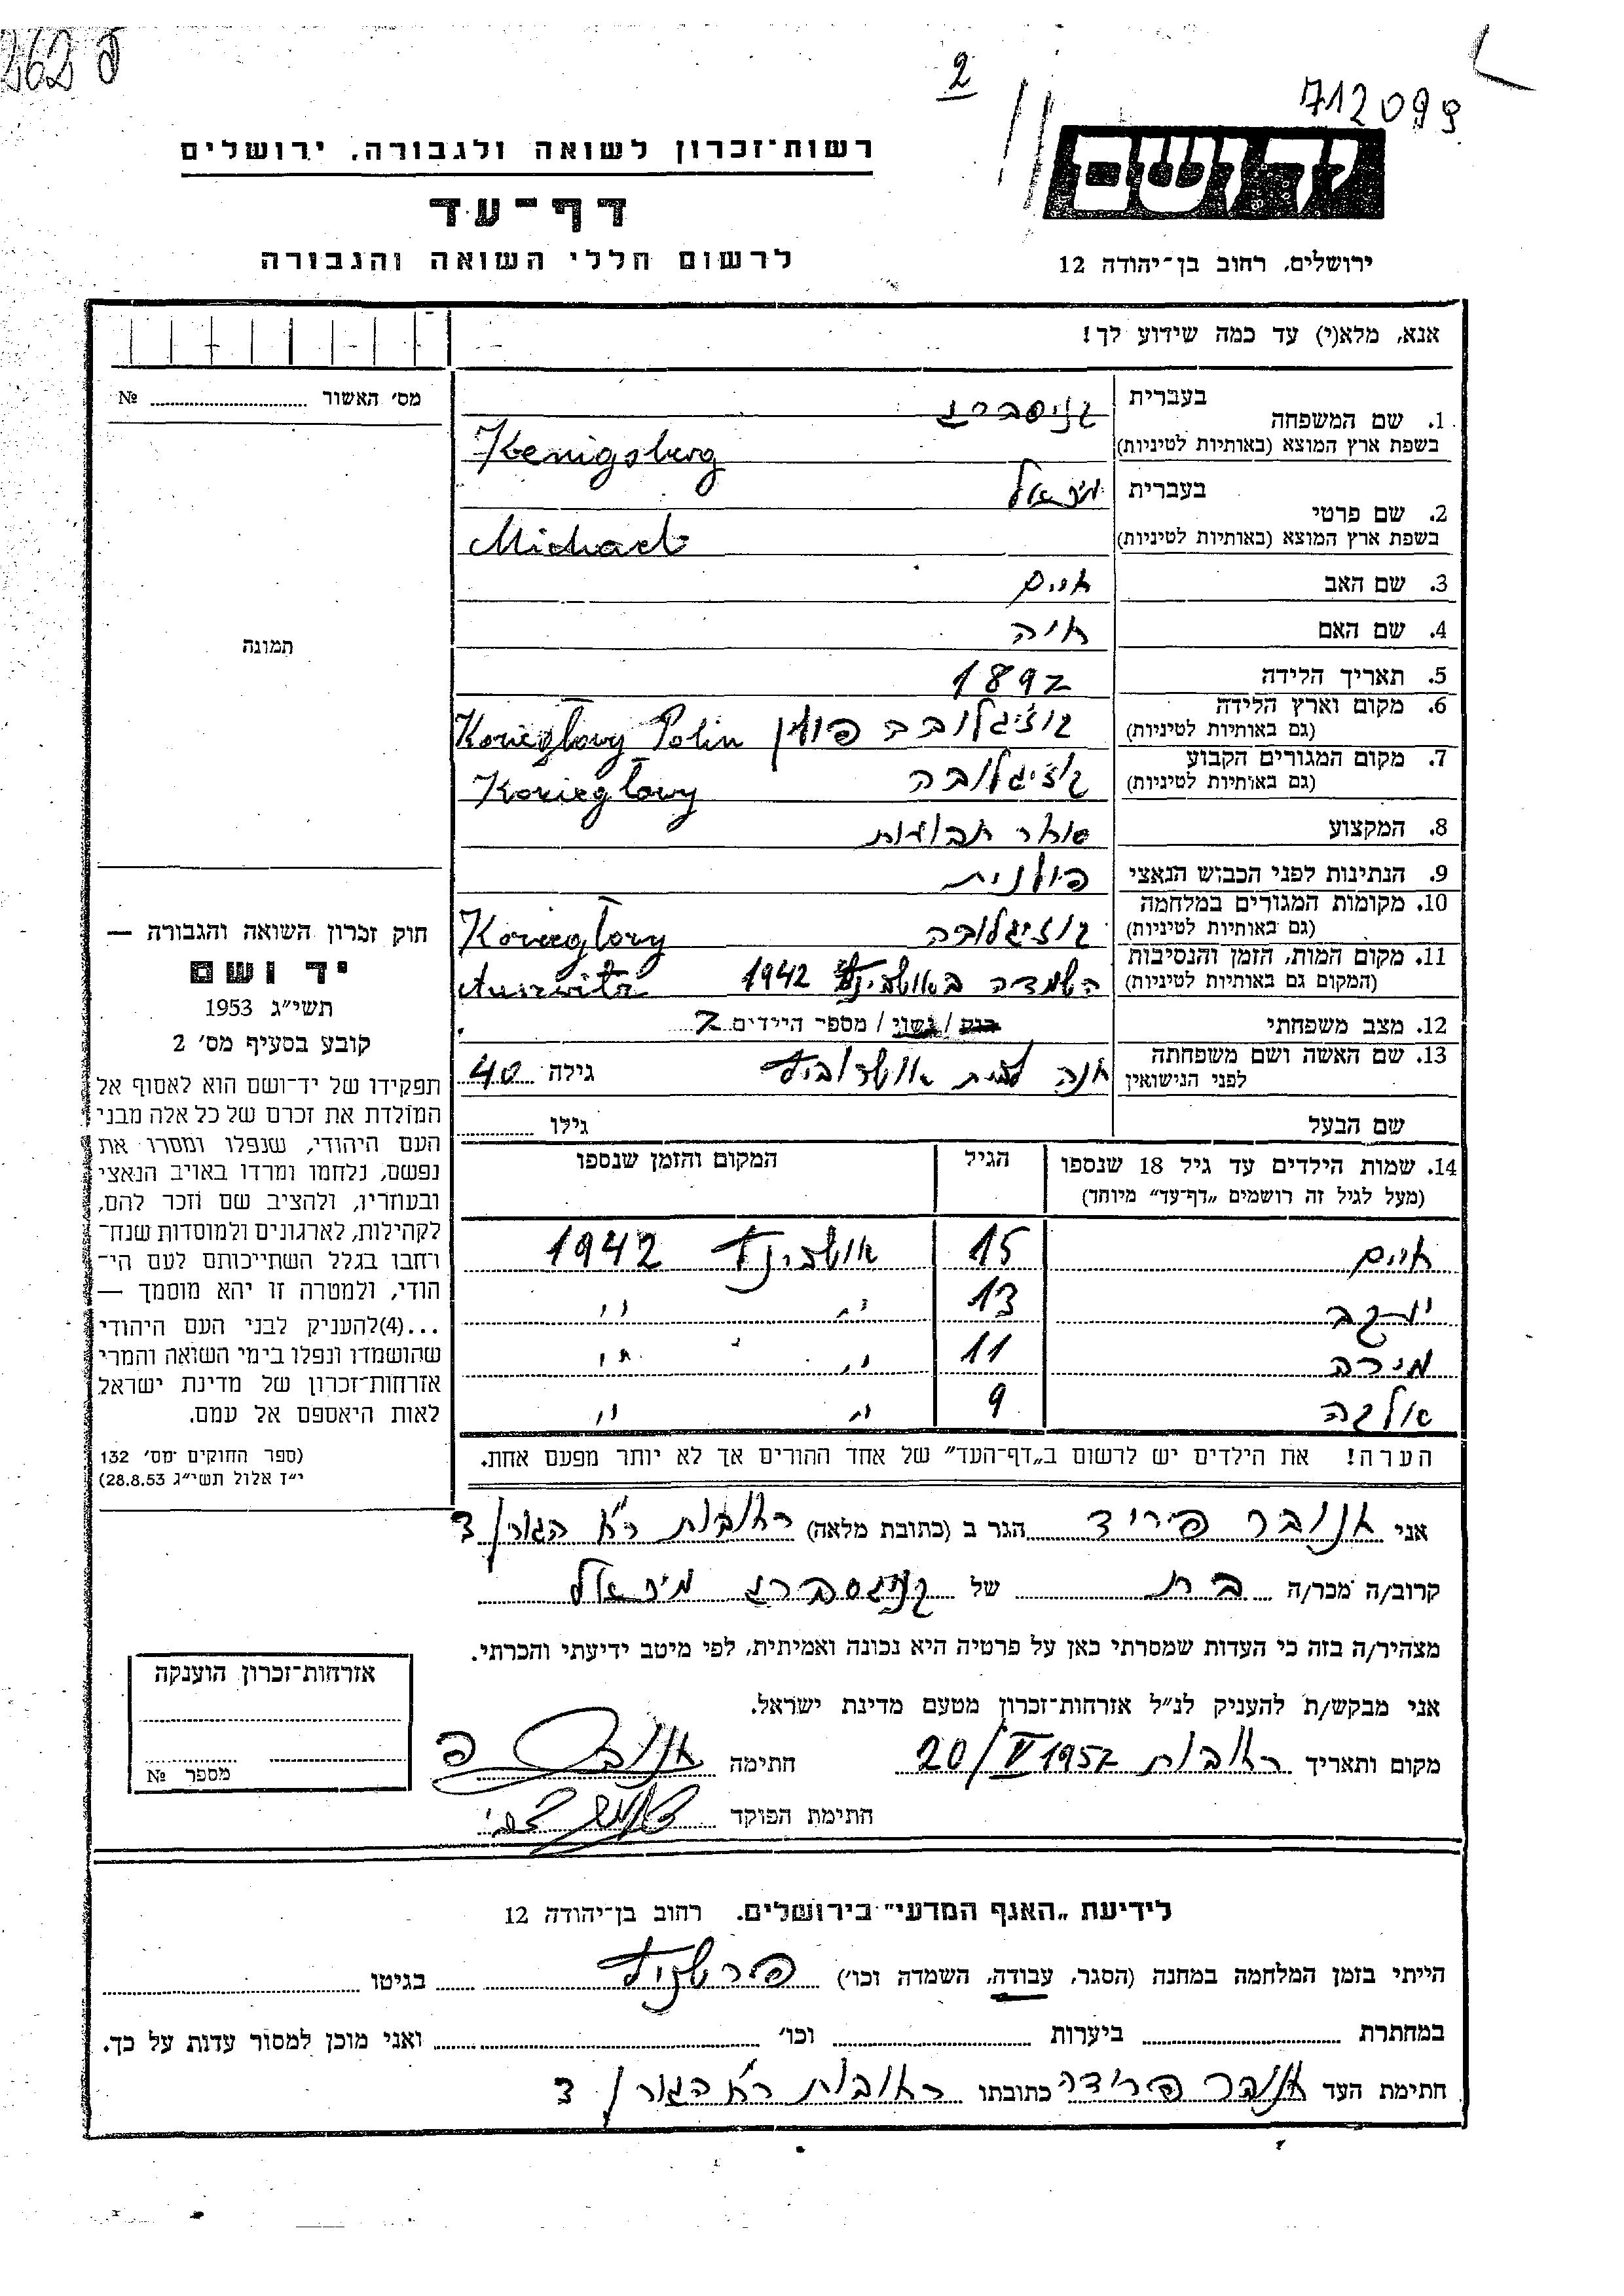 262 פ
2
712099
יד ושם
רשות־זכרון לשואה ולגבורה, ירושלים
דף־עד
לרשום חללי השואה והגבורה
ירושלים, רחוב בן־יהודה 12
אנא, מלא(י) עד כמה שידוע לך!
מס׳ האשור № 
1. שם המשפחה בעברית קניגסברג
בשפת ארץ המוצא (באותיות לטיניות) Kenigsberg
2. שם פרטי בעברית מיכאל
בשפת ארץ המוצא (באותיות לטיניות) Michael
3. שם האב חיים
4. שם האם חיה
תמונה
5. תאריך הלידה 1892
6. מקום וארץ הלידה (גם באותיות לטיניות) קוזיגלובה פולין Kozieglowy Polin
7. מקום המגורים הקבוע (גם באותיות לטיניות) קוזיגלובה Kozieglowy
8. המקצוע סוחר תבואות
9. הנתינות לפני הכבוש הנאצי פולנית
10. מקומות המגורים במלחמה (גם באותיות לטיניות) קוזיגלובה Kozieglowy
11. מקום המות, הזמן והנסיבות (המקום גם באותיות לטיניות) השמדה באושביץ 1942 Auszwitz
12. מצב משפחתי רוק / נשוי / מספר הילדים 7
13. שם האשה ושם משפחתה לפני הנישואין חנה לבית גילה 40
שם הבעל גילו
14. שמות הילדים עד גיל 18 שנספו הגיל המקום והזמן שנספו
(מעל לגיל זה רושמים „דף־עד״ מיוחד)
חיים 15 אושביץ 1942
יעקב 13 ״ ״
מירה 11 ״ ״
אלקה 9 ״ ״
הערה! את הילדים יש לרשום ב„דף־העד״ של אחד ההורים אך לא יותר מפעם אחת.
חוק זכרון השואה והגבורה —
יד ושם
תשי״ג 1953
קובע בסעיף מס׳ 2
תפקידו של יד־ושם הוא לאסוף אל
המולדת את זכרם של כל אלה מבני
העם היהודי, שנפלו ומסרו את
נפשם, נלחמו ומרדו באויב הנאצי
ובעוזריו, ולהציב שם וזכר להם,
לקהילות, לארגונים ולמוסדות שנח־
רחבו בגלל השתייכותם לעם הי־
הודי, ולמטרה זו יהא מוסמך —
...(4)להעניק לבני העם היהודי
שהושמדו ונפלו בימי השואה והמרי
אזרחות־זכרון של מדינת ישראל
לאות היאספם אל עמם.
(ספר החוקים מס׳ 132
י״ז אלול תשי״ג 28.8.53)
אני אנובר פריד הגר ב (כתובת מלאה) ראובות רח׳ הגורן 3
קרוב/ה מכר/ה בת של קניגסברג מיכאל
מצהיר/ה בזה כי העדות שמסרתי כאן על פרטיה היא נכונה ואמיתית, לפי מיטב ידיעתי והכרתי.
אני מבקש/ת להעניק לנ״ל אזרחות־זכרון מטעם מדינת ישראל.
מקום ותאריך ראובות 20/VI 1957 חתימה אנובר פ
חתימת הפוקד
אזרחות־זכרון הוענקה
מספר №
לידיעת „האגף המדעי״ בירושלים. רחוב בן־יהודה 12
הייתי בזמן המלחמה במחנה (הסגר, עבודה, השמדה וכו׳) פרשניץ בגיטו
במחתרת ביערות וכו׳ ואני מוכן למסור עדות על כך.
חתימת העד אנובר פרידה כתובתו ראובות רח׳ הגורן 3